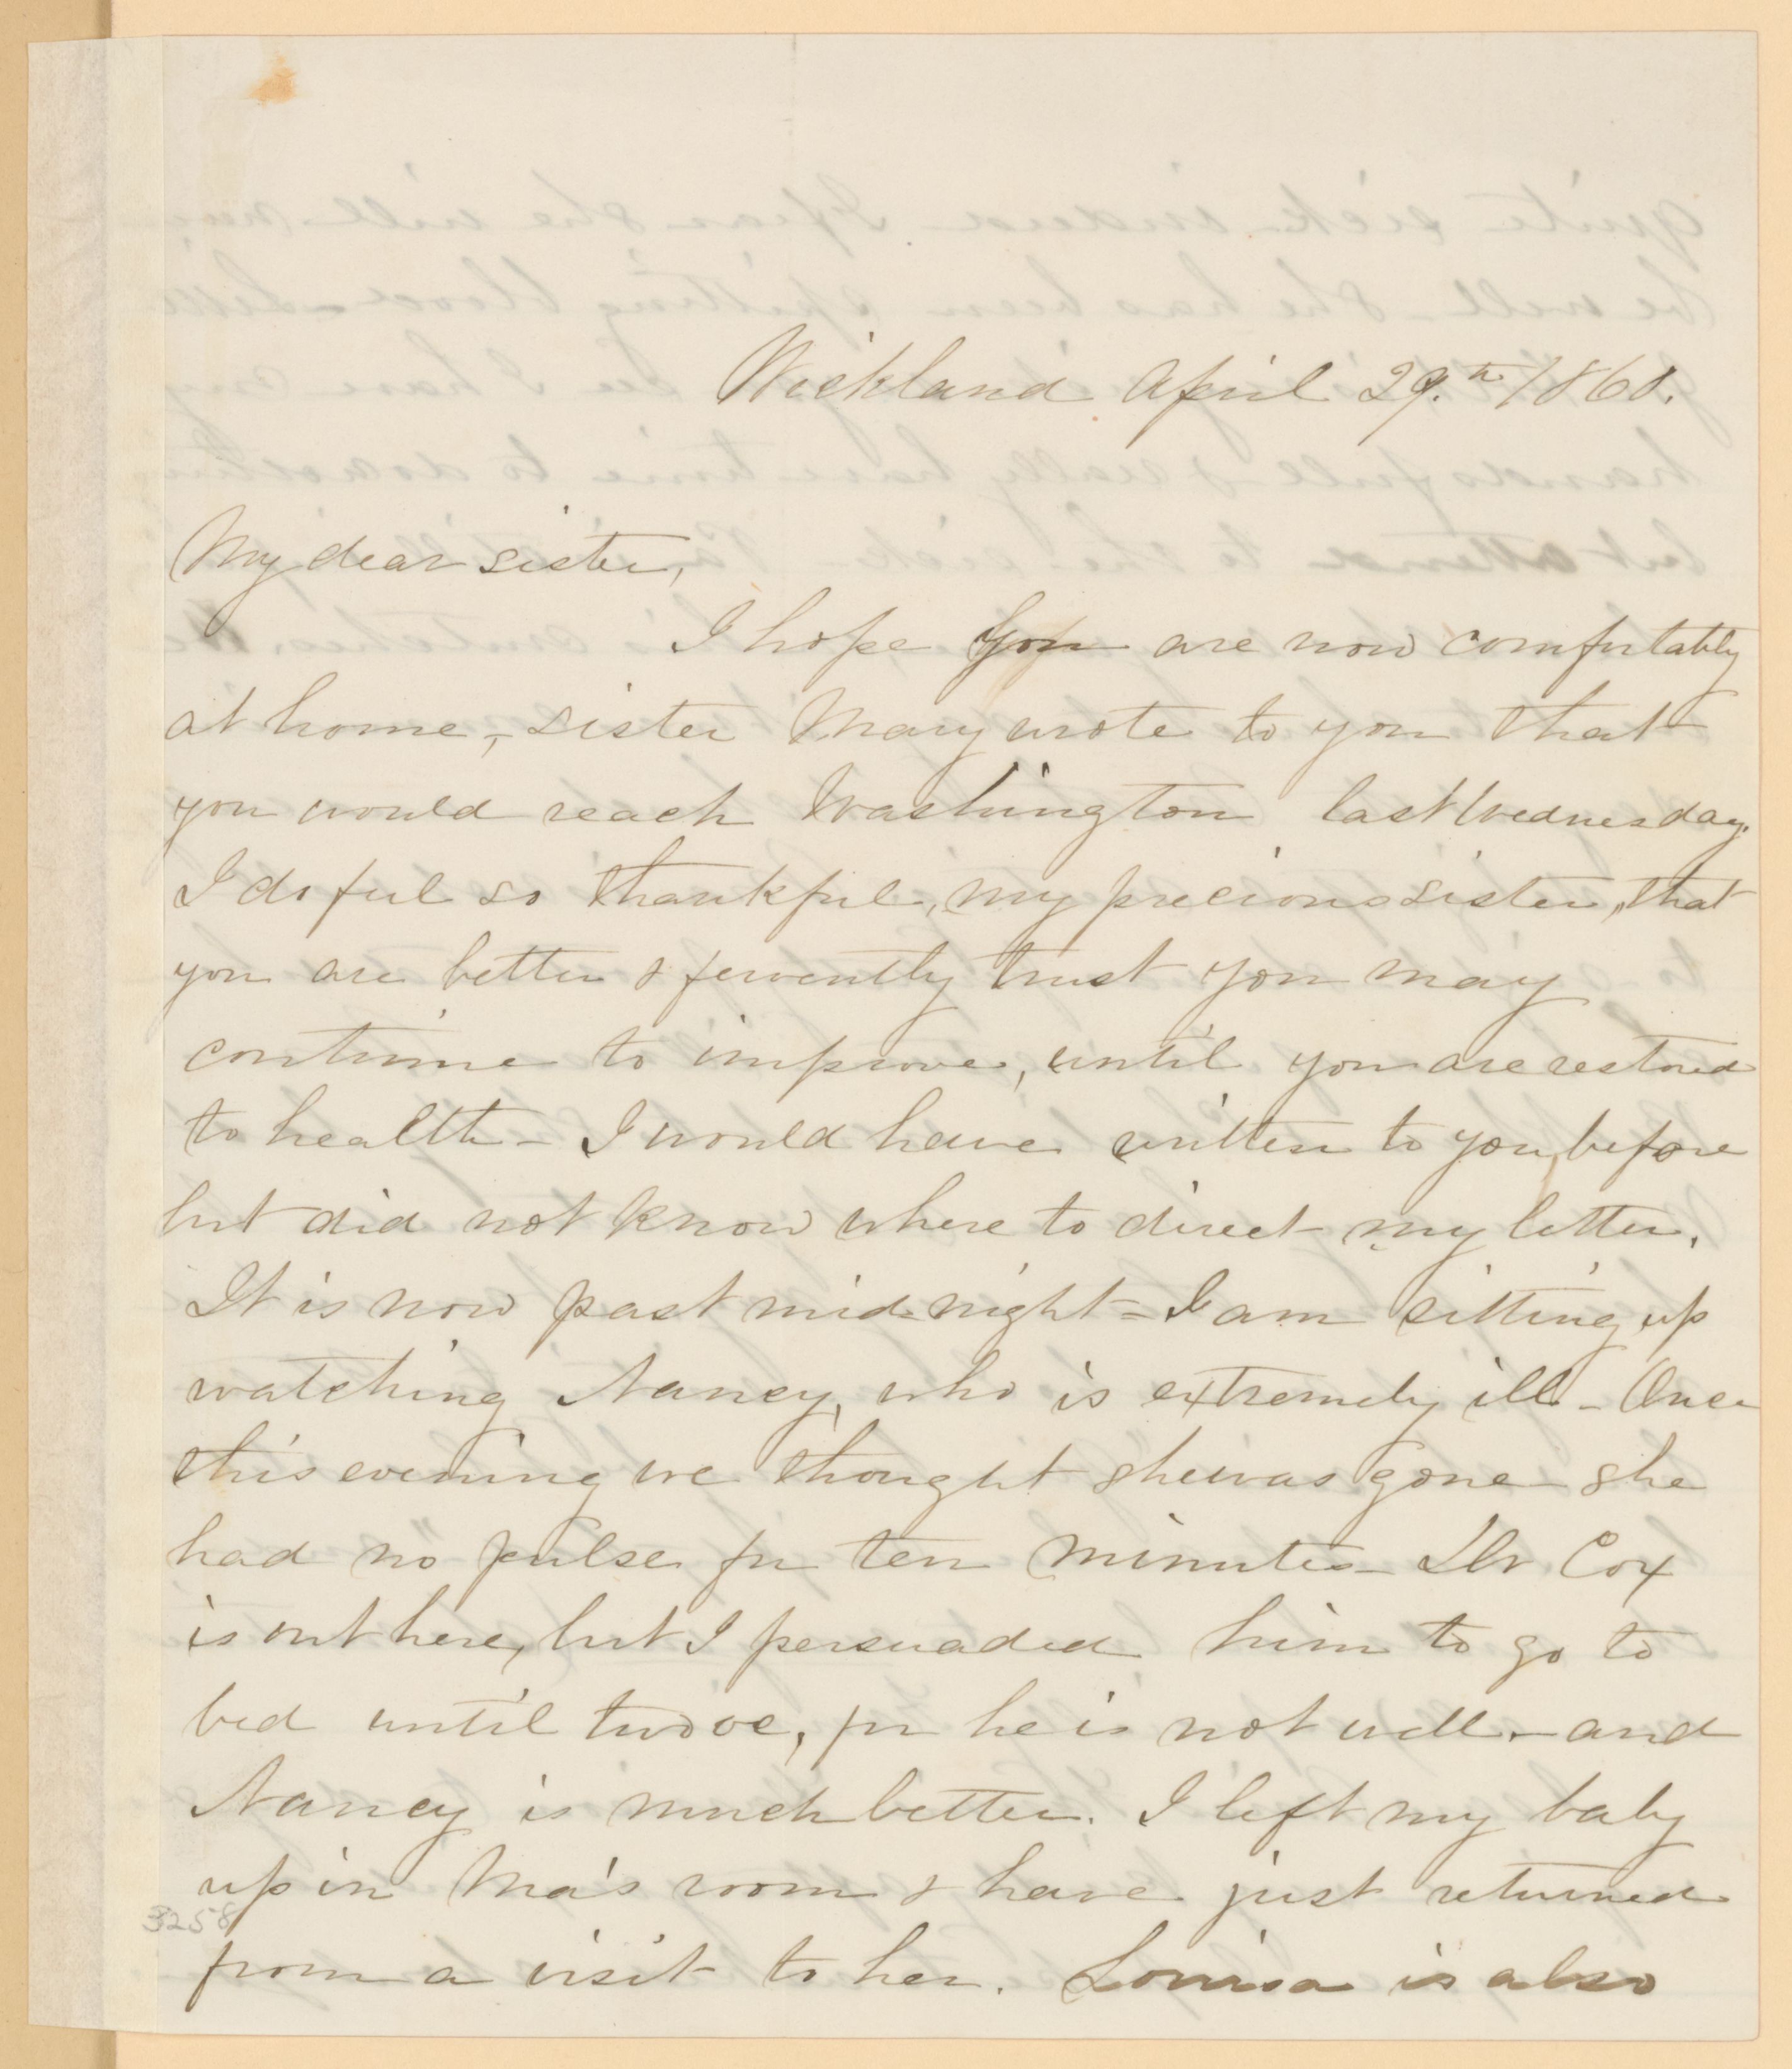 Wickland April 29.th 1860.
My dear sister,
I hope you are now comfortably
at home, - sister Mary wrote to you that
you would reach Washington last Wednesday.
I do feel so thankful, my precious sister, that
you are better & fervently trust you may
continue to improve, until you are restored
to health - I would have written to you before
but did not know where to direct my letter.
It is now past mid-night - I am sitting up
watching Nancy, who is extremely ill - Once
this evening we thought she was gone - she
had no pulse for ten minutes - Dr. Cox
is out here, but I persuaded him to go to
bed until two oc, for he is not well - and
Nancy is much better. I left my baby
up in Ma's room & have just returned
from a visit to her. Louisa is also
3258